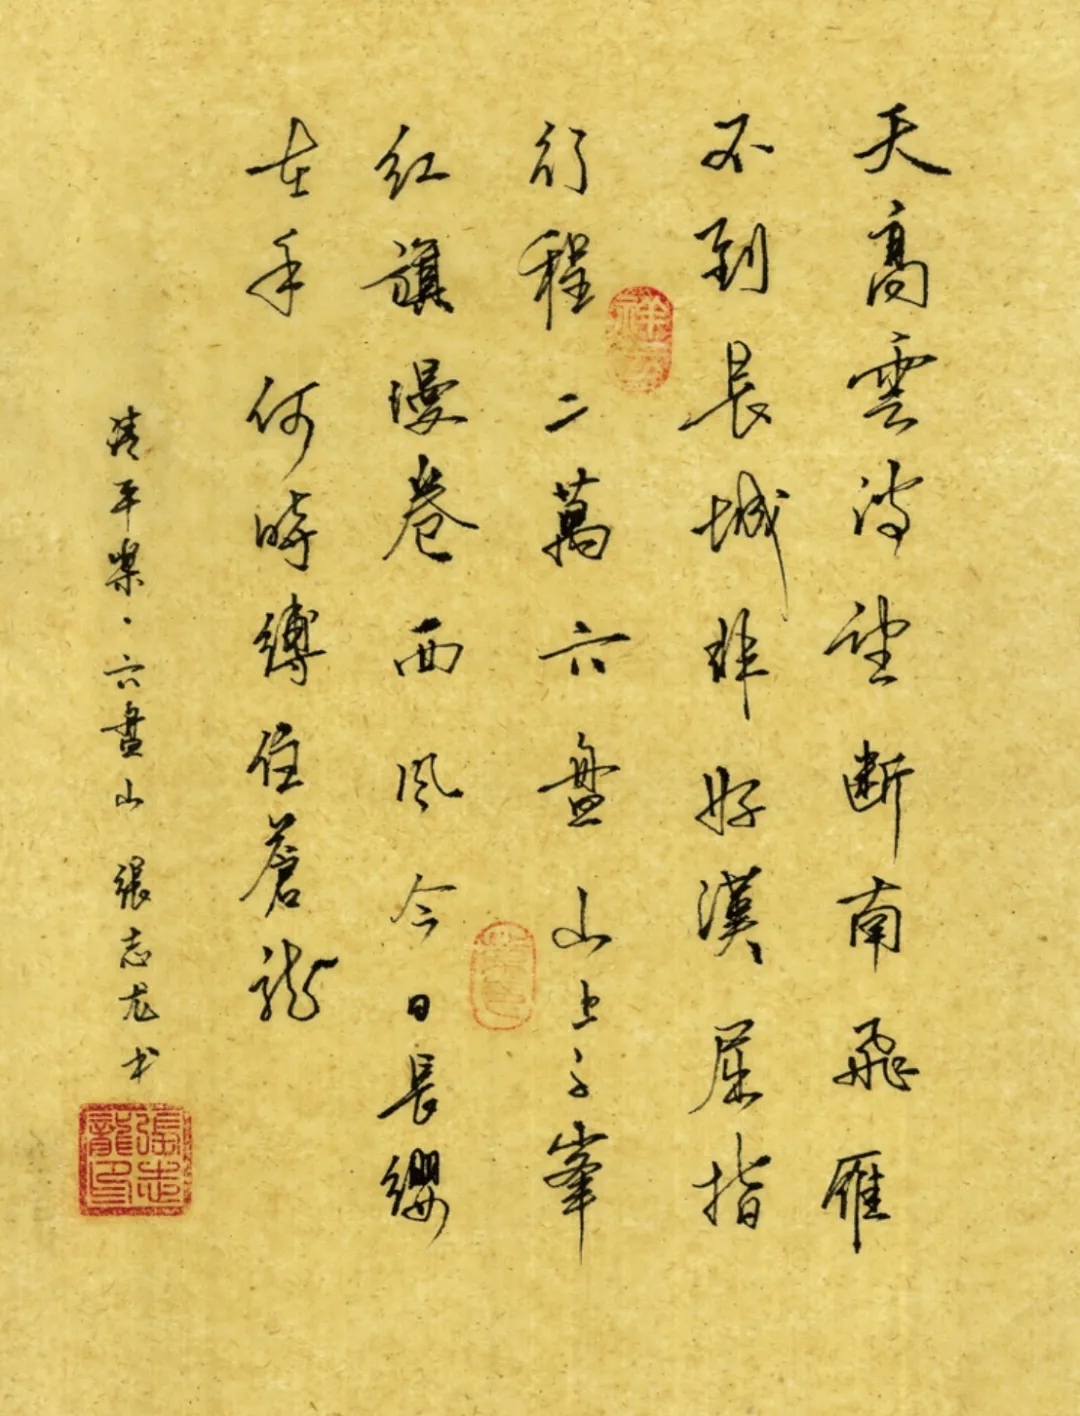 天高雲淡望断南飛雁
不到長城非好漢屈指
行程二萬六盘山上高峯
红旗漫卷西风今日長纓
在手何時縛住蒼龍
清平樂·六盘山 張志龙书
張志龍印